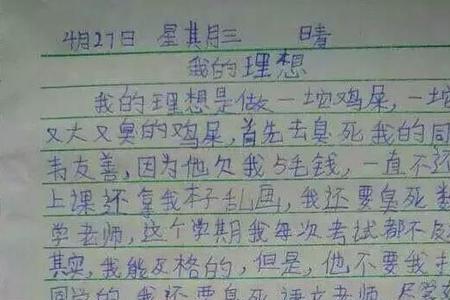 4月27日 星其月三 晴
我的理想
我的理想是做一坨鸡屎,一坨
又大又臭的鸡屎,首先去臭死我的同
韦友善,因为他欠我5毛钱,一直不还
上课还拿我本子乱画,我还要臭死数
学老师,这个学期我每次考试都不及
其实,我能及格的,但是,他不要我
同学的,我还要臭死语文老师,